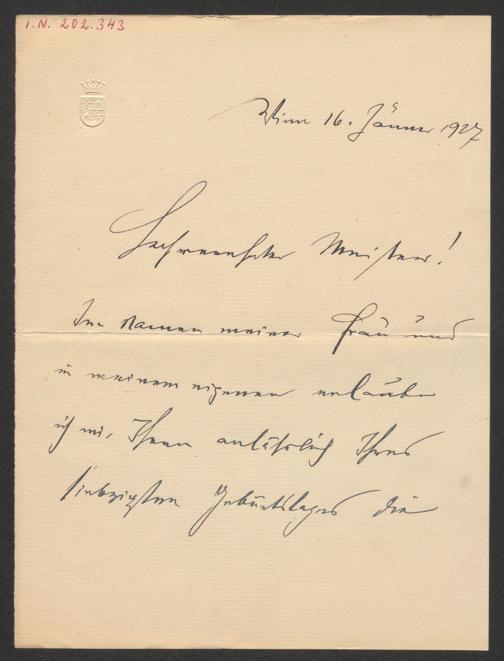 I.N. 202.343
Wien 16. Jänner 1927
Hochverehrter Meister!
Im Namen meiner Frau und
in meinem eigenen erlaube
ich mir Ihnen anlässlich Ihres
siebzigsten Geburtstages die